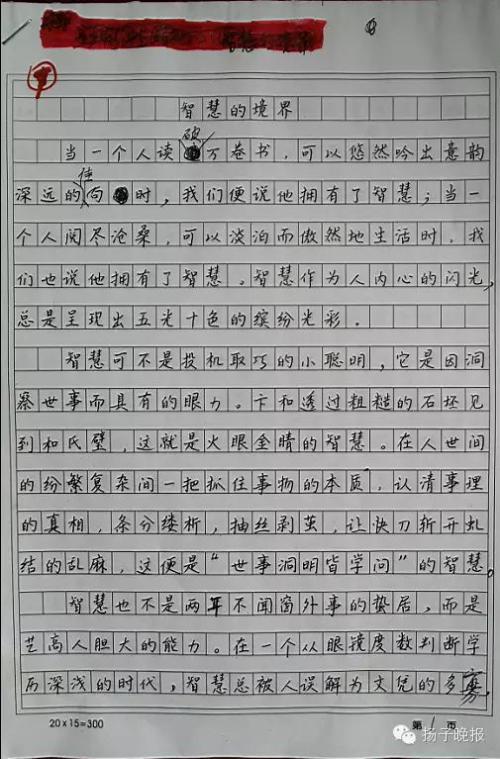 智慧的境界
当一个人读破万卷书，可以悠然吟出意韵
深远的佳句时，我们便说他拥有了智慧；当一
个人阅尽沧桑，可以淡泊而傲然地生活时，我
们也说他拥有了智慧。智慧作为人内心的闪光，
总是呈现出五光十色的缤纷光彩。
智慧可不是投机取巧的小聪明，它是因洞
察世事而具有的眼力。卞和透过粗糙的石坯见
到和氏璧，这就是火眼金睛的智慧。在人世间
的纷繁复杂间一把抓住事物的本质，认清事理
的真相，条分缕析，抽丝剥茧，让快刀斩开虬
结的乱麻，这便是“世事洞明皆学问”的智慧。
智慧也不是两耳不闻窗外事的蛰居，而是
艺高人胆大的能力。在一个从眼镜度数判断学
历深浅的时代，智慧总被人误解为文凭的多寡，
20×15=300
第1页
扬子晚报